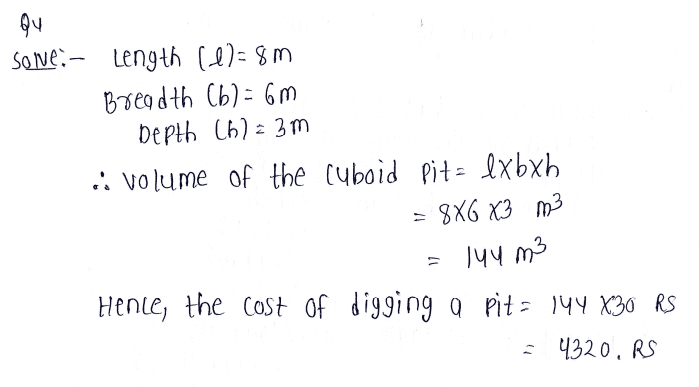 Q4
Solve:- Length (l) = 8m
Breadth (b) = 6m
Depth (h) = 3m
∴ volume of the cuboid pit = l×b×h
= 8×6×3 m³
= 144 m³
Hence, the cost of digging a pit = 144 ×30 RS
= 4320. RS